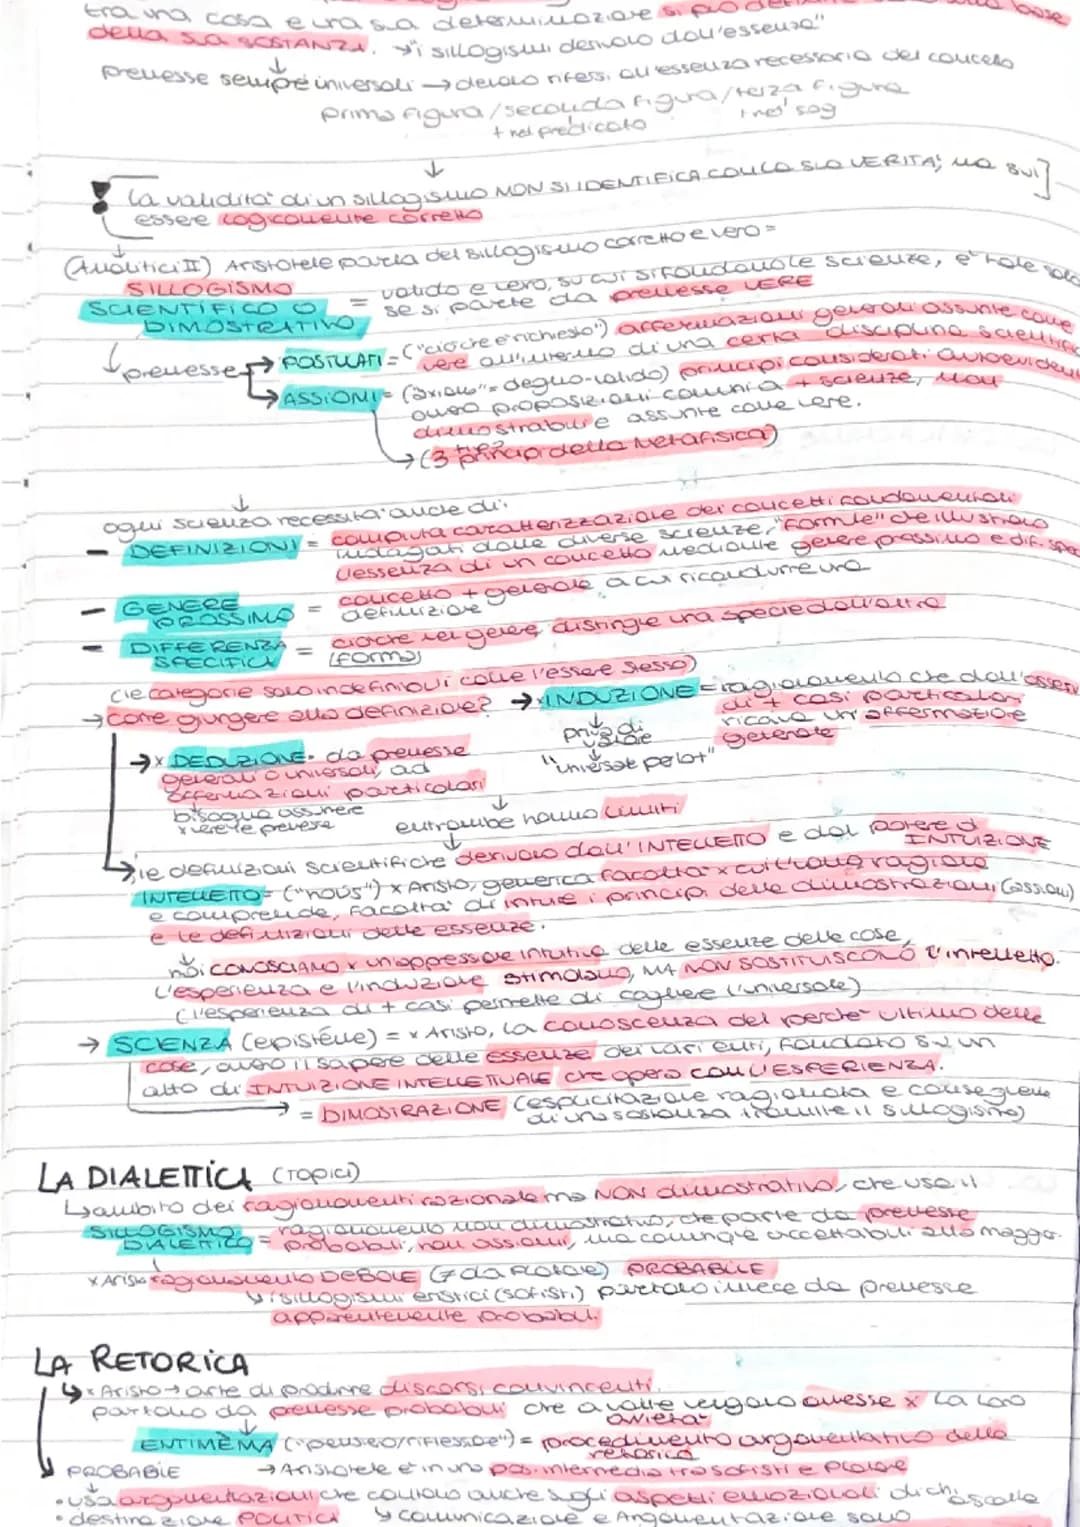 tra una cosa e una sua determinazione si può base
della sua SOSTANZA. → "i sillogismi derivano dall'essenza"
↓
premesse sempre universali → devono riferirsi all'essenza necessaria del concetto
prima figura/seconda figura/terza figura
+ nel predicato + nel sog
↓
! la validità di un sillogismo NON SI IDENTIFICA CON LA SUA VERITÀ, ma sul
essere logicamente corretto
↓
(Analitici II) Aristotele parla del sillogismo corretto e vero =
SILLOGISMO
SCIENTIFICO O = valido e vero, su cui si fondano le scienze, è tale solo
DIMOSTRATIVO se si parte da premesse VERE
↓ premesse → POSTULATI = ("ciò che è richiesto") affermazioni generali assunte come
vere all'interno di una certa disciplina scientific
→ ASSIOMI = (axiom"= degno-valido) principi considerati autoevidenti
ovvero proposizioni comuni a + scienze, non
dimostrabili e assunte come vere.
→ (3 principi della Metafisica)
↓
ogni scienza necessita anche di:
— DEFINIZIONI = compiuta caratterizzazione dei concetti fondamentali
indagati dalle diverse scienze, "formule" che illustrano
l'essenza di un concetto mediante genere prossimo e dif. spec
— GENERE PROSSIMO = concetto + generale a cui ricondurre una
definizione
— DIFFERENZA SPECIFICA = ciò che nel genere, distingue una specie dall'altra
(forma)
(le categorie sono indefinibili come l'essere stesso)
→ come giungere alla definizione? → x INDUZIONE = ragionamento che dall'osserv
di + casi particolari
ricava un'affermazione
generale
↓
priva di
valore
↓
"universale per lo +"
→ x DEDUZIONE = da premesse
generali o universali, ad
affermazioni particolari
bisogna assumere
x vere le premesse
↓
entrambe hanno limiti
↓
→ le definizioni scientifiche derivano dall'INTELLETTO e dal potere d
INTUIZIONE
INTELLETTO = ("noûs") x Aristo, generica facoltà x cui l'uomo ragiona
e comprende, facoltà di intuire i principi delle dimostrazioni (assiomi)
e le definizioni delle essenze.
↓
noi CONOSCIAMO x un'apprensione intuitiva delle essenze delle cose,
l'esperienza e l'induzione stimolano, MA NON SOSTITUISCONO l'intelletto.
(l'esperienza di + casi permette di cogliere l'universale)
→ SCIENZA (epistéme) = x Aristo, la conoscenza del perché ultimo delle
cose, ovvero il sapere delle essenze dei vari enti, fondato su un
atto di INTUIZIONE INTELLETTUALE che opera CON L'ESPERIENZA.
→ = DIMOSTRAZIONE (esplicitazione ragionata e conseguente
di una sostanza tramite il sillogismo)
LA DIALETTICA (Topici)
↳ ambito dei ragionamenti razionale ma NON dimostrativo, che usa il
SILLOGISMO DIALETTICO = ragionamento non dimostrativo, che parte da premesse
probabili, non assiomi, ma comunque accettabili alla maggor.
↓
x Aristo ragionamento DEBOLE (≠ da Platone) PROBABILE
↳ i sillogismi eristici (sofisti) partono invece da premesse
apparentemente probabili.
LA RETORICA
↳ x Aristo → arte di produrre discorsi convincenti.
partono da premesse probabili che a volte vengono omesse x la loro
ovvietà
↓
ENTIMÈMA ("penso/riflessione") = procedimento argomentativo della
retorica
↓ PROBABILE → Aristotele è in una pos. intermedia tra sofisti e Platone
• usa argomentazioni che contano anche sugli aspetti emozionali di chi ascolta
• destinazione POLITICA ↳ comunicazione e Argomentazione sono